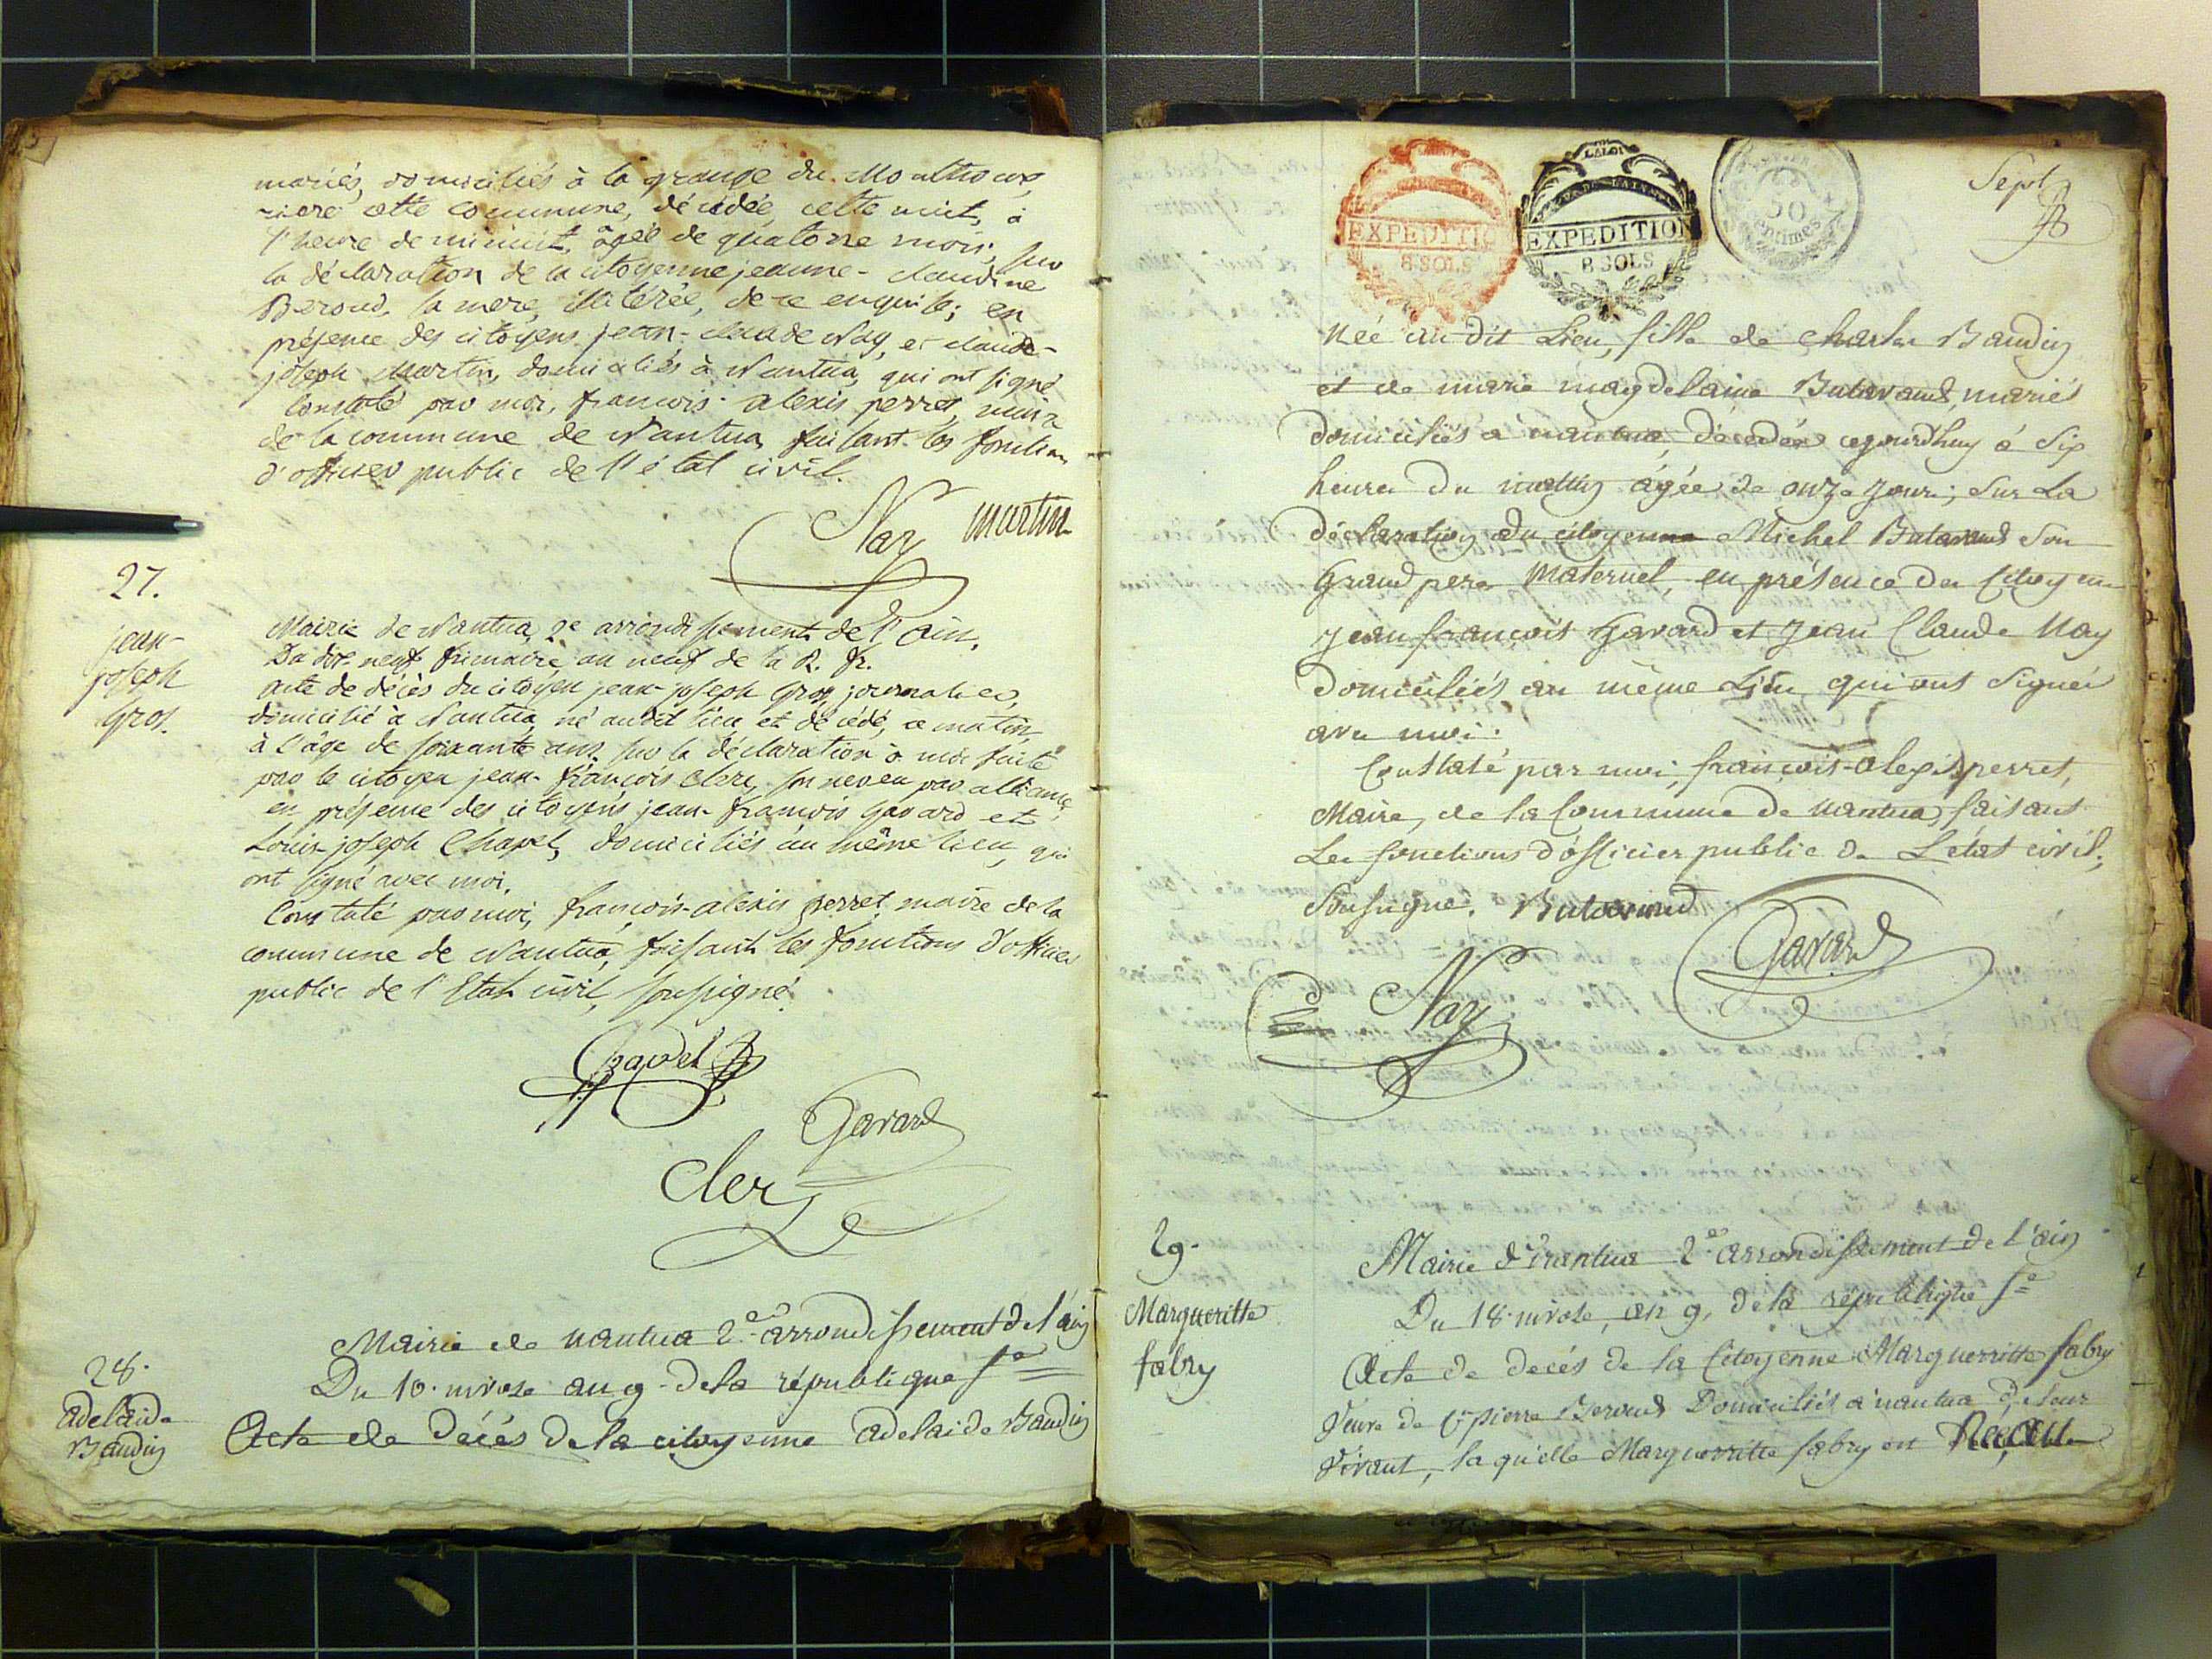 mariés, domiciliés à la grange du
rière cette commune, décédée, cette nuit, à
l'heure de minuit, âgée de quatorze mois; sur
la déclaration de la citoyenne jeanne-claudine
Beroud, sa mere, illitérée, de ce enquise; en
présence des citoyens jean-claude Nay, et claude-
joseph Martin, domiciliés à Nantua, qui ont signé
Constaté par moi, francois-alexis perret, maire
de la commune de Nantua, faisant les fonctions
d'officier public de l'état civil.
Nay martin
27.
jean-
joseph
Gros.
Mairie de Nantua, 2e arrondissement de l'ain.
Du dix-neuf frimaire an neuf de la R. fr.
acte de décès du citoyen jean-joseph Gros, journalier,
domicilié à Nantua, né audit lieu, et décédé, ce matin
à l'âge de soixante ans, sur la déclaration à moi faite
par le citoyen jean-françois Clerc, son neveu par alliance,
en présence des citoyens jean-francois Gavard et
Louis joseph Chapel, domiciliés au même lieu, qui
ont signé avec moi.
Constaté par moi, françois-alexis perret, maire de la
commune de Nantua, faisant les fonctions d'officier
public de l'Etat civil, soussigné.
Chapel
Gavard
Clerc
28.
adelaide
Baudin
Mairie de nantua 2e arrondissement de l'ain
Du 10. nivose an 9. de la république fe
Acte de décés de la citoyenne adelaide Baudin
Sept
LA LOI
EXPEDITIO
8 SOLS
EXPEDITION
8 SOLS
50
centimes
née au dit Lieu, fille de Charles Baudin
et de marie magdelaine Butavand, mariés
domiciliés a nantua, décedée cejourdhuy à Six
heures du mattin agée de onze jours; Sur La
déclaration du citoyen Michel Butavand Son
Grand pere Maternel, en présence des Citoyens
Jean françois Gavard et Jean Claude Nay
domiciliés au même Lieu qui ont Signés
avec moi.
Constaté par moi, françois-alexis perret,
Maire, de la Commune de nantua, faisant
Les fonctions d'officier public de L'état civil,
Soussigné. Butavand
Gavard
Nay
29.
Margueritte
fabry
Mairie de nantua 2e arrondissement de l'ain
Du 18. nivose, an 9. de la république fe
Acte de decés de la Citoyenne Marguerritte fabry
Veuve de Cn pierre Beroud Domiciliés a nantua de leur
Vivant, la qu'elle Marguerritte fabry est Née, au